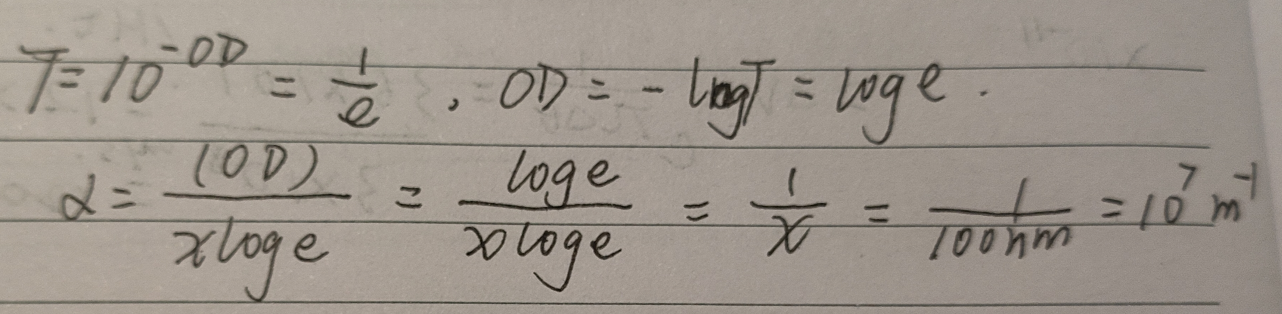 T = 10^{-OD} = 1/e , OD = - log T = log e .
α = (OD)/(x log e) = (log e)/(x log e) = 1/x = 1/(100nm) = 10^7 m^{-1}